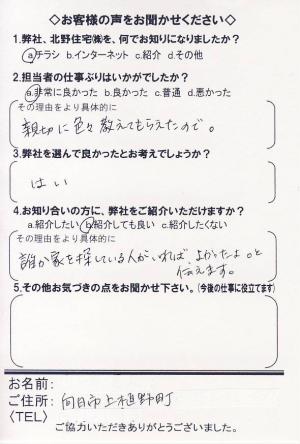 ◇お客様の声をお聞かせください◇
1.弊社、北野住宅㈱を、何でお知りになりましたか？
a.チラシ b.インターネット c.紹介 d.その他
2.担当者の仕事ぶりはいかがでしたか？
a.非常に良かった b.良かった c.普通 d.悪かった
その理由をより具体的に
親切に色々教えてもらえたので。
3.弊社を選んで良かったとお考えでしょうか？
はい
4.お知り合いの方に、弊社をご紹介いただけますか？
a.紹介したい b.紹介しても良い c.紹介したくない
その理由をより具体的に
誰か家を探している人がいれば、よかったよ。と
伝えます。
5.その他お気づきの点をお聞かせ下さい。(今後の仕事に役立てます)
お名前:
ご住所: 向日市上植野町
〈TEL〉
ご協力いただきありがとうございました。